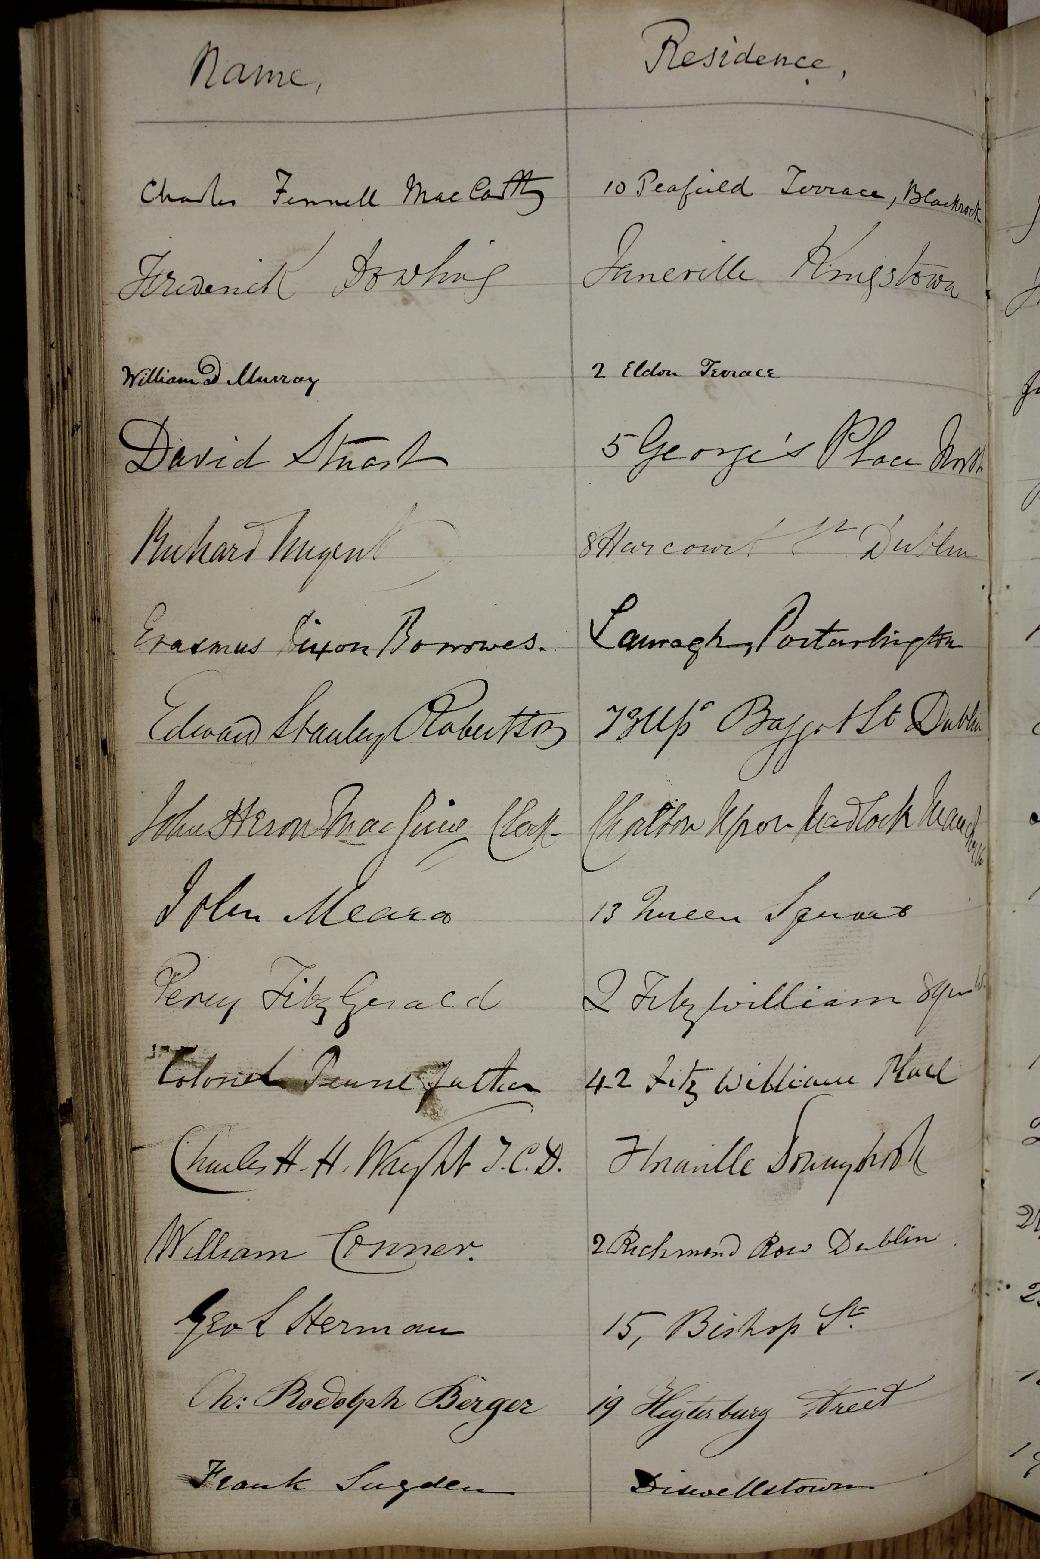 Name, Residence,
Charles Fennell MacCarthy 10 Peafield Terrace, Blackrock
Frederick Dowling Janeville Kingstown
William D Murray 2 Eldon Terrace
David Stuart 5 George's Place North
Richard Nugent 8 Harcourt St Dublin
Erasmus Dixon Borrowes. Lauragh, Portarlington
Edward Stanley Robertson 73 Upr Baggot St Dublin
John Heron Clerk Chorlton Upon Medlock
John Meara 13 Queen Square
Percy FitzGerald 2 Fitzwilliam Square
Colonel Pennefather 42 Fitzwilliam Place
Charles H. H. Wright T.C.D. Floraville Donnybrook
William Conner. 2 Richmond Row Dublin
Geo L Herman 15, Bishop St.
Ch: Rodolph Berger 19 Heytesbury Street
Frank Sugden Diswellstown